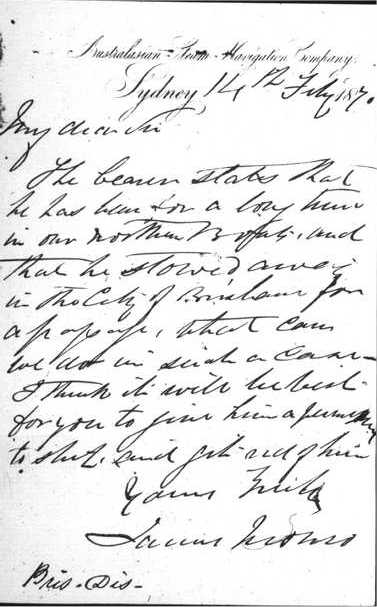 Australasian Steam Navigation Company
Sydney 14th Feby 1870
My dear Sir
The bearer states that
he has been for a long time
in our Northern Boats, and
that he stowed away
in the City of Brisbane for
a passage, what can
we do in such a case -
I think it will be best
for you to give him a
to and get rid of him
Yours truly
James Munro
Bris - Dis -